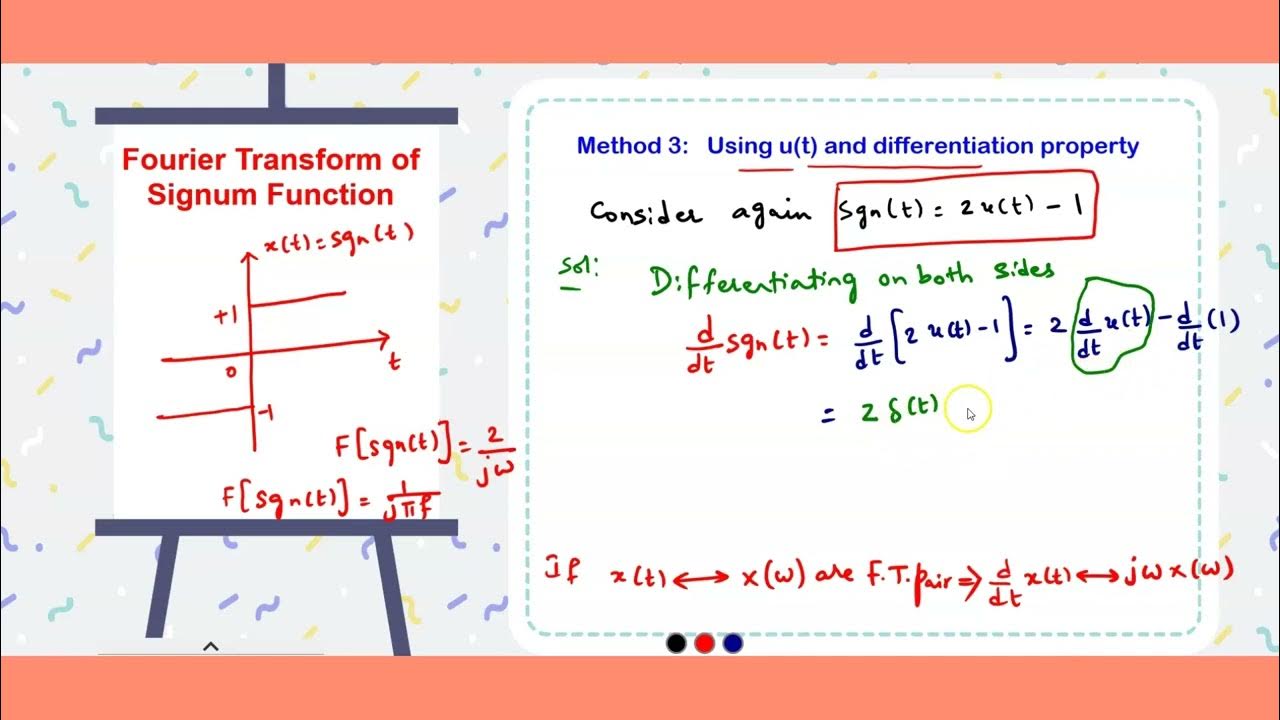 Fourier Transform of
Signum Function
x(t)=Sgn(t)
+1
t
0
-1
F[Sgn(t)] = 2/jω
F[Sgn(t)] = 1/jπf
Method 3: Using u(t) and differentiation property
Consider again Sgn(t) = 2u(t) - 1
Sol:
Differentiating on both sides
d/dt Sgn(t) = d/dt [2 u(t) - 1] = 2 d/dt u(t) - d/dt (1)
= 2 δ(t)
If x(t) ⟷ X(ω) are F.T. pair ⇒ d/dt x(t) ⟷ jω X(ω)